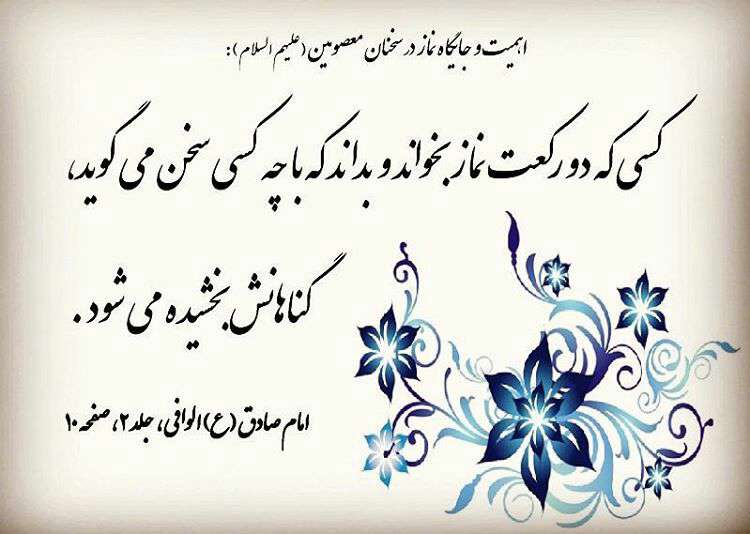 اهمیت و جایگاه نماز در سخنان معصومین (علیهم السلام):
کسی که دو رکعت نماز بخواند و بداند که با چه کسی سخن می گوید،
گناهانش بخشیده می شود.
امام صادق (ع) الوافی، جلد ۲، صفحه ۱۰